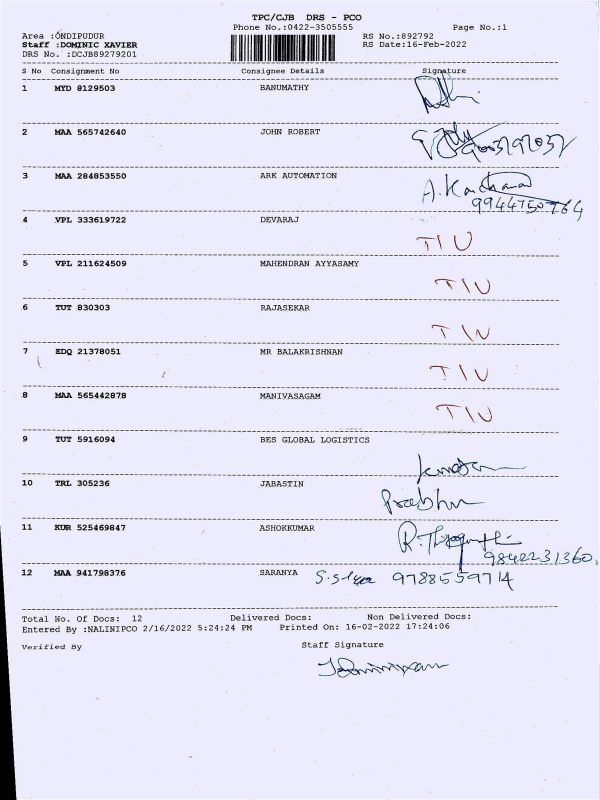 TPC/CJB DRS - PCO
Phone No.:0422-3505555
Page No.:1
Area :ONDIPUDUR
RS No.:892792
Staff :DOMINIC XAVIER
RS Date:16-Feb-2022
DRS No. :DCJB89279201
S No Consignment No Consignee Details Signature
1 MYD 8129503 BANUMATHY
2 MAA 565742640 JOHN ROBERT
3 MAA 284853550 ARK AUTOMATION
9944750764
4 VPL 333619722 DEVARAJ
TIU
5 VPL 211624509 MAHENDRAN AYYASAMY
TIU
6 TUT 830303 RAJASEKAR
TIU
7 EDQ 21378051 MR BALAKRISHNAN
TIU
8 MAA 565442878 MANIVASAGAM
TIU
9 TUT 5916094 BES GLOBAL LOGISTICS
10 TRL 305236 JABASTIN
Prabhu
11 KUR 525469847 ASHOKKUMAR
9842231360.
12 MAA 941798376 SARANYA 9788559714
Total No. Of Docs: 12 Delivered Docs: Non Delivered Docs:
Entered By :NALINIPCO 2/16/2022 5:24:24 PM Printed On: 16-02-2022 17:24:06
Verified By Staff Signature